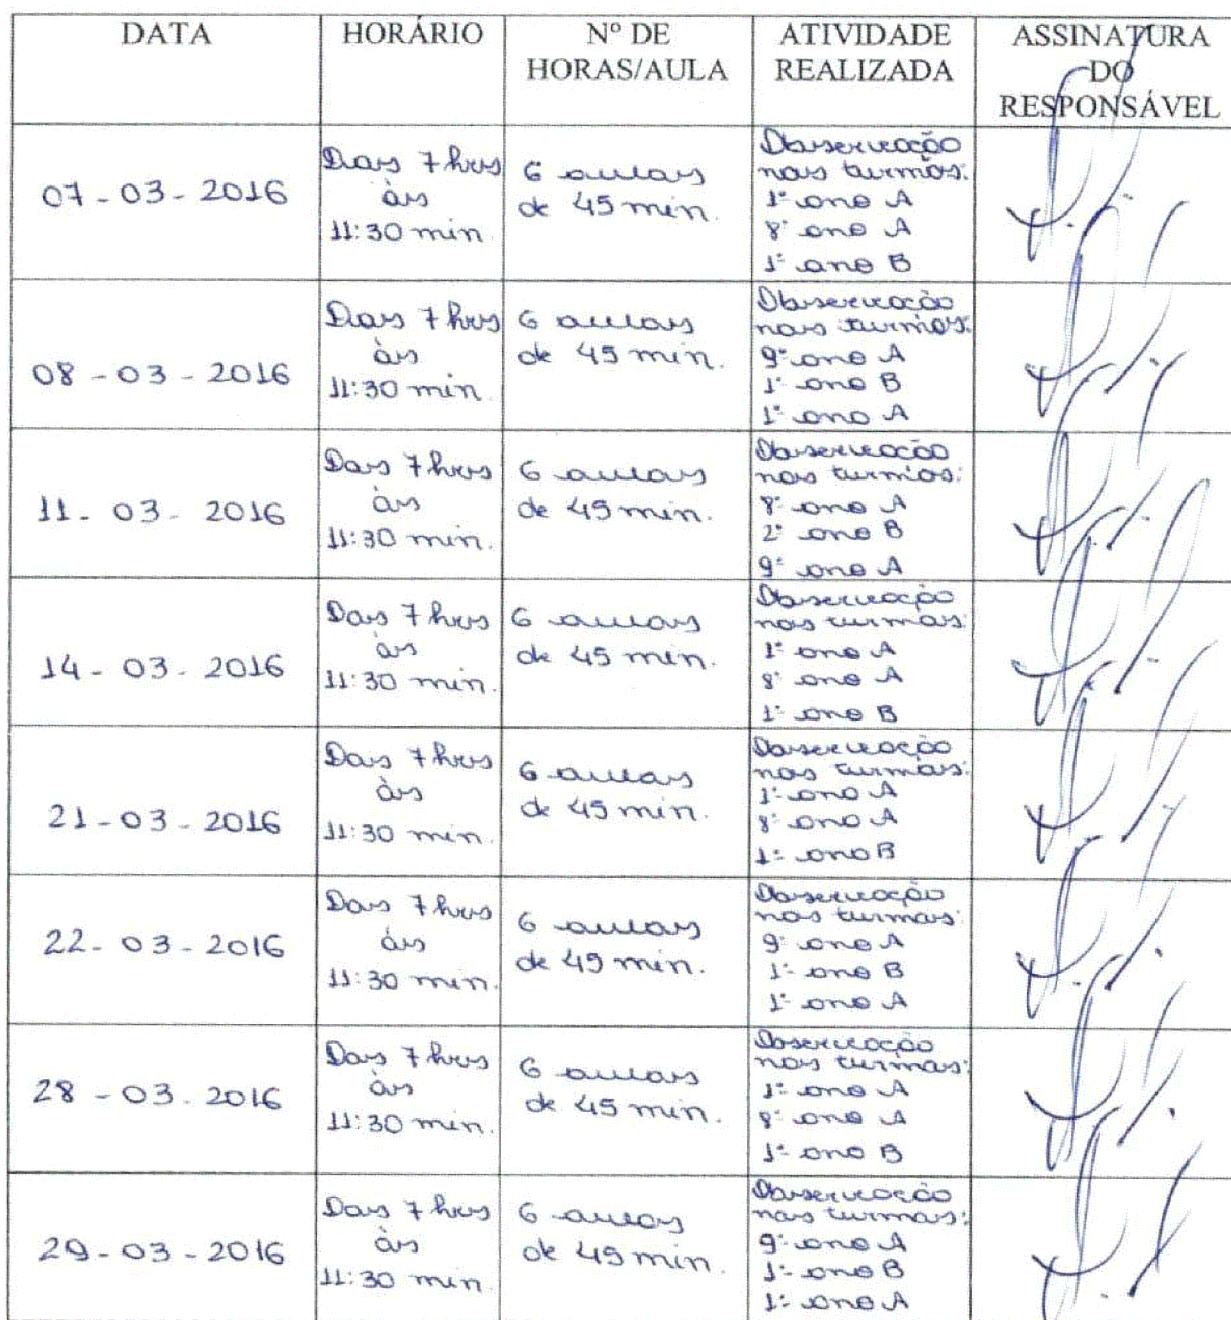 DATA
HORÁRIO
Nº DE
HORAS/AULA
ATIVIDADE
REALIZADA
ASSINATURA
DO
RESPONSÁVEL
07-03-2016
Das 7 hrs
às
11:30 min.
6 aulas
de 45 min.
Observação
nas turmas:
1º ano A
8º ano A
1º ano B
08-03-2016
Das 7 hrs
às
11:30 min.
6 aulas
de 45 min.
Observação
nas turmas:
9º ano A
1º ano B
1º ano A
11-03-2016
Das 7 hrs
às
11:30 min.
6 aulas
de 45 min.
Observação
nas turmas:
8º ano A
2º ano B
9º ano A
14-03-2016
Das 7 hrs
às
11:30 min.
6 aulas
de 45 min.
Observação
nas turmas:
1º ano A
8º ano A
1º ano B
21-03-2016
Das 7 hrs
às
11:30 min.
6 aulas
de 45 min.
Observação
nas turmas:
1º ano A
8º ano A
1º ano B
22-03-2016
Das 7 hrs
às
11:30 min.
6 aulas
de 45 min.
Observação
nas turmas:
9º ano A
1º ano B
1º ano A
28-03-2016
Das 7 hrs
às
11:30 min.
6 aulas
de 45 min.
Observação
nas turmas:
1º ano A
8º ano A
1º ano B
29-03-2016
Das 7 hrs
às
11:30 min.
6 aulas
de 45 min.
Observação
nas turmas:
9º ano A
1º ano B
1º ano A